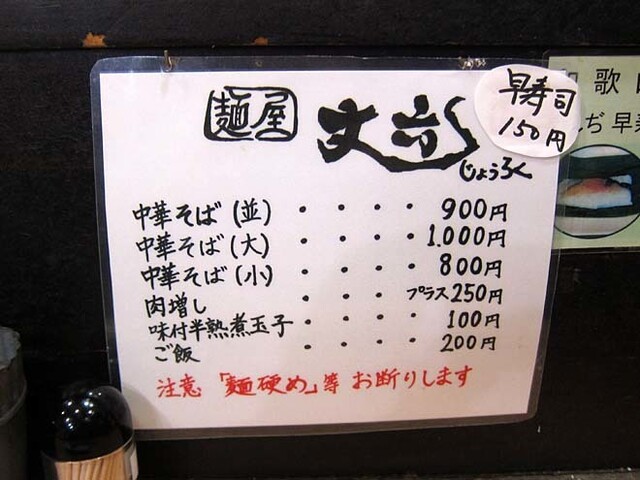 麺屋
丈六
じょうろく
早寿司
150円
中華そば(並)・・・・900円
中華そば(大)・・・・1.000円
中華そば(小)・・・・800円
肉増し・・・・プラス250円
味付半熟煮玉子・・・・100円
ご飯・・・・200円
注意「麺硬め」等 お断りします
歌
早